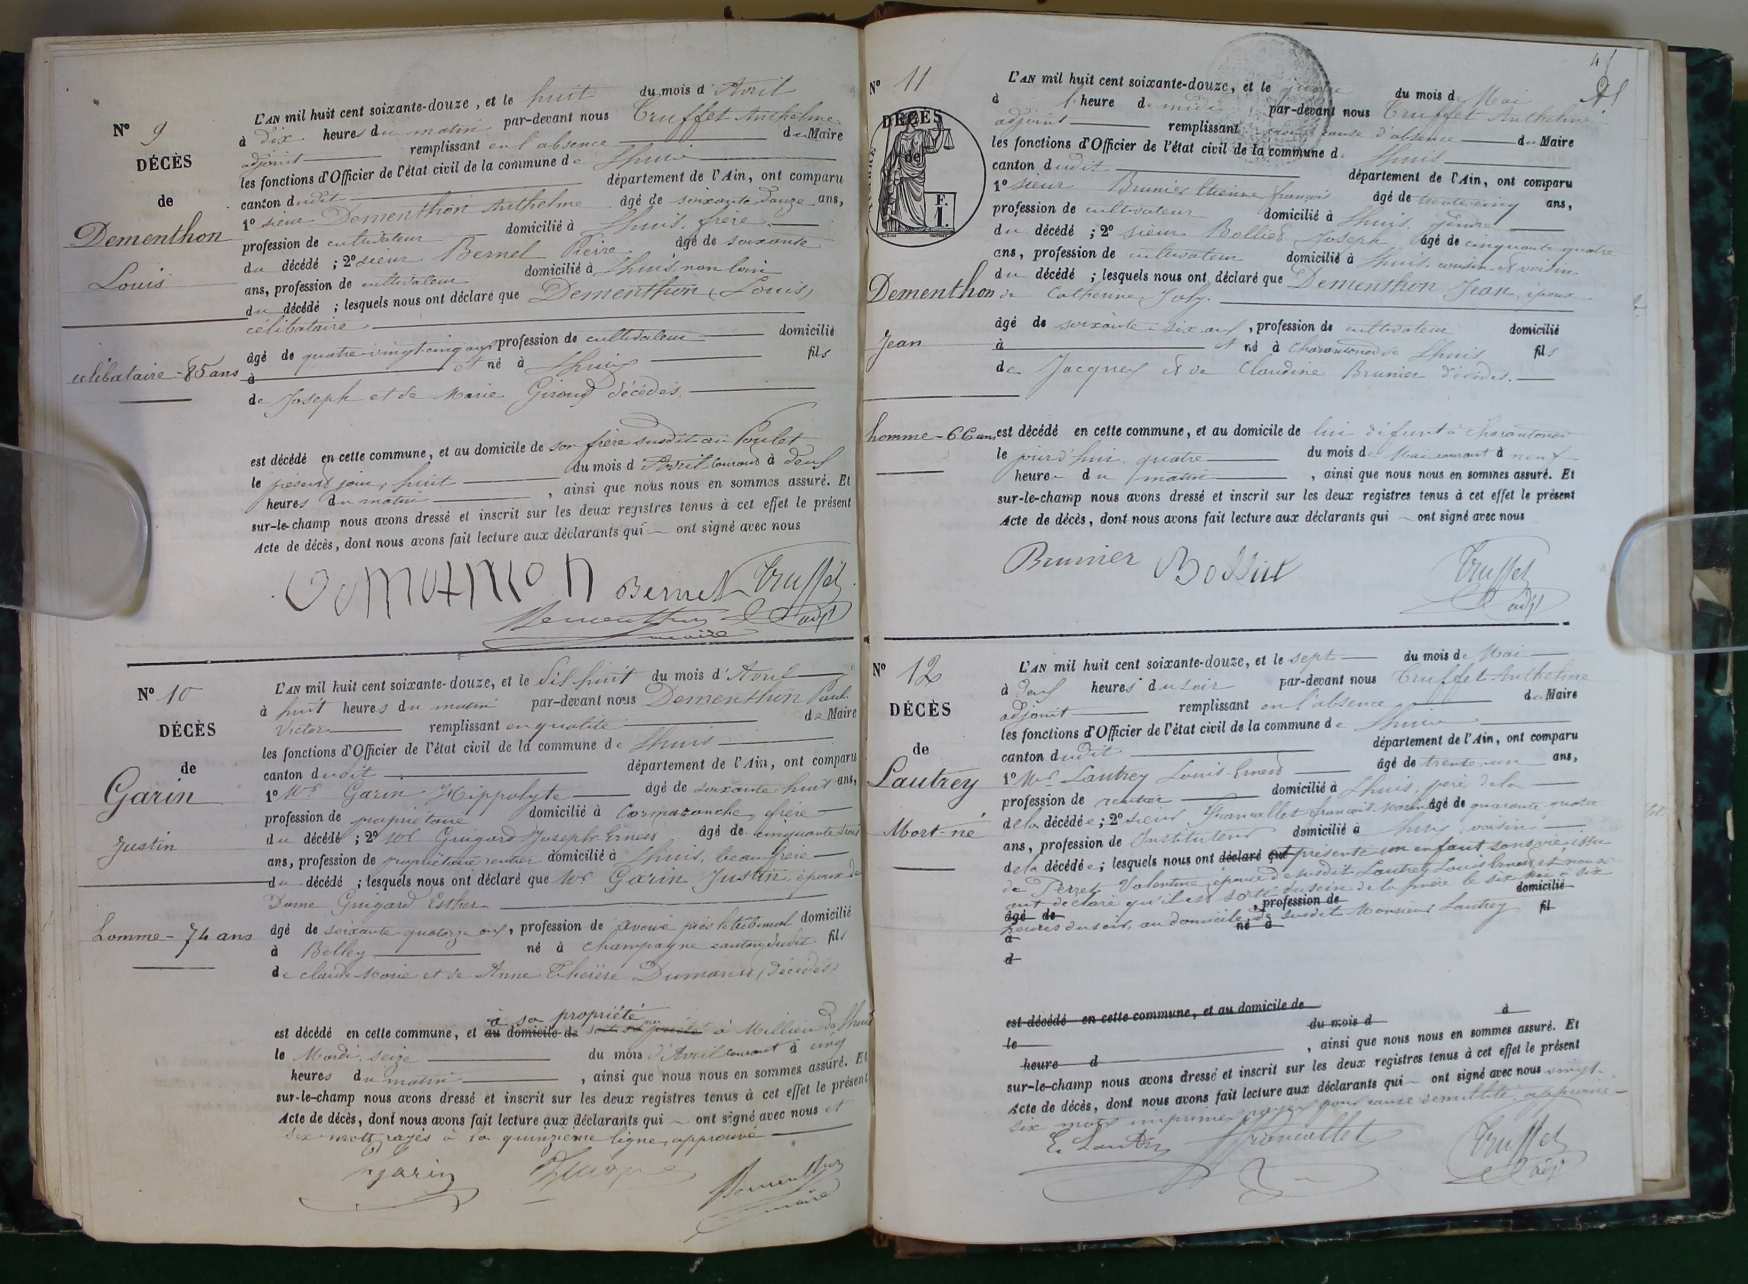 N° 9
DÉCÈS
de
Dementhon
Louis
célibataire - 85 ans
L'AN mil huit cent soixante-douze, et le huit du mois d'Avril
à dix heures du matin par-devant nous Truffet Anthelme
adjoint remplissant en l'absence du Maire
les fonctions d'Officier de l'état civil de la commune de Lhuis
canton dudit département de l'Ain, ont comparu
1° sieur Dementhon Anthelme âgé de soixante douze ans,
profession de cultivateur domicilié à Lhuis, frère
du décédé ; 2° sieur Bernet Pierre âgé de soixante
ans, profession de cultivateur domicilié à Lhuis, non loin
du décédé ; lesquels nous ont déclaré que Dementhon (Louis)
célibataire
âgé de quatre-vingt-cinq ans profession de cultivateur domicilié
à et né à Lhuis fils
de Joseph et de Marie Giroud décédés.
est décédé en cette commune, et au domicile de son frère susdit au Poulet
le présent jour, huit du mois d'Avril courant à deux
heures du matin , ainsi que nous nous en sommes assuré. Et
sur-le-champ nous avons dressé et inscrit sur les deux registres tenus à cet effet le présent
Acte de décès, dont nous avons fait lecture aux déclarants qui ont signé avec nous
Demothion Bernet Truffet
Dementhon maire adjt
N° 10
DÉCÈS
de
Garin
Justin
homme - 74 ans
L'AN mil huit cent soixante-douze, et le dix huit du mois d'Avril
à huit heures du matin par-devant nous Dementhon Paul
Victor remplissant en qualité de Maire
les fonctions d'Officier de l'état civil de la commune de Lhuis
canton dudit département de l'Ain, ont comparu
1° Mr Garin Hippolyte âgé de soixante huit ans,
profession de propriétaire domicilié à Cormaranche, frère
du décédé ; 2° Mr Guigard Joseph Ernest âgé de cinquante trois
ans, profession de propriétaire rentier domicilié à Lhuis, beau frère
du décédé ; lesquels nous ont déclaré que Mr Garin Justin époux de
Dame Guigard Esther
âgé de soixante quatorze ans, profession de avoué près le tribunal domicilié
à Belley né à Champagne canton dudit fils
de Claude Marie et de Anne Thérèse Dumarest, décédés
à sa propriété
est décédé en cette commune, et au domicile de à Millieu de Lhuis
le Mardi seize du mois d'Avril courant à cinq
heures du matin , ainsi que nous nous en sommes assuré. Et
sur-le-champ nous avons dressé et inscrit sur les deux registres tenus à cet effet le présent
Acte de décès, dont nous avons fait lecture aux déclarants qui ont signé avec nous et
six mots rayés à la quinzième ligne, approuvé
Garin
Dementhon
maire
N° 11
DÉCÈS
de
F.
1.
Dementhon
Jean
homme - 66 ans
L'AN mil huit cent soixante-douze, et le quatre du mois de Mai
à l'heure de midi par-devant nous Truffet Anthelme
adjoint remplissant pour cause d'absence du Maire
les fonctions d'Officier de l'état civil de la commune de Lhuis
canton dudit département de l'Ain, ont comparu
1° sieur Brunier Etienne françois âgé de trente cinq ans,
profession de cultivateur domicilié à Lhuis, gendre
du décédé ; 2° sieur Bollier Joseph âgé de cinquante quatre
ans, profession de cultivateur domicilié à Lhuis, cousin et voisin
du décédé ; lesquels nous ont déclaré que Dementhon Jean, époux
de Catherine Joly.
âgé de soixante-six ans, profession de cultivateur domicilié
à et né à Charantonod de Lhuis fils
de Jacques et de Claudine Brunier décédés.
est décédé en cette commune, et au domicile de lui défunt à Charantonod
le jourd'hui quatre du mois de Mai courant à neuf
heures du matin , ainsi que nous nous en sommes assuré. Et
sur-le-champ nous avons dressé et inscrit sur les deux registres tenus à cet effet le présent
Acte de décès, dont nous avons fait lecture aux déclarants qui ont signé avec nous
Brunier Truffet
adjt
N° 12
DÉCÈS
de
Lautrey
Mort-né
L'AN mil huit cent soixante-douze, et le sept du mois de Mai
à deux heures du soir par-devant nous Truffet Anthelme
adjoint remplissant en l'absence du Maire
les fonctions d'Officier de l'état civil de la commune de Lhuis
canton dudit département de l'Ain, ont comparu
1° Mr Lautrey Louis-Ernest âgé de trente-un ans,
profession de rentier domicilié à Lhuis, père de la
de la décédée ; 2° sieur françois âgé de quarante quatre
ans, profession de Instituteur domicilié à Lhuis, voisin
de la décédée ; lesquels nous ont déclaré que présenté un enfant sans vie, issu
de Perret Valentine, épouse du susdit Lautrey Louis Ernest et nous
ont déclaré qu'il est sorti du sein de la mère le six à dix
âgé de , profession de domicilié
heures du soir, au domicile du susdit Monsieur Lautrey
à né à fil
d
est décédé en cette commune, et au domicile de
le du mois d à
heure d , ainsi que nous nous en sommes assuré. Et
sur-le-champ nous avons dressé et inscrit sur les deux registres tenus à cet effet le présent
Acte de décès, dont nous avons fait lecture aux déclarants qui ont signé avec nous vingt-
six mots imprimés rayés pour cause d'inutilité, approuvé
Truffet
adjt